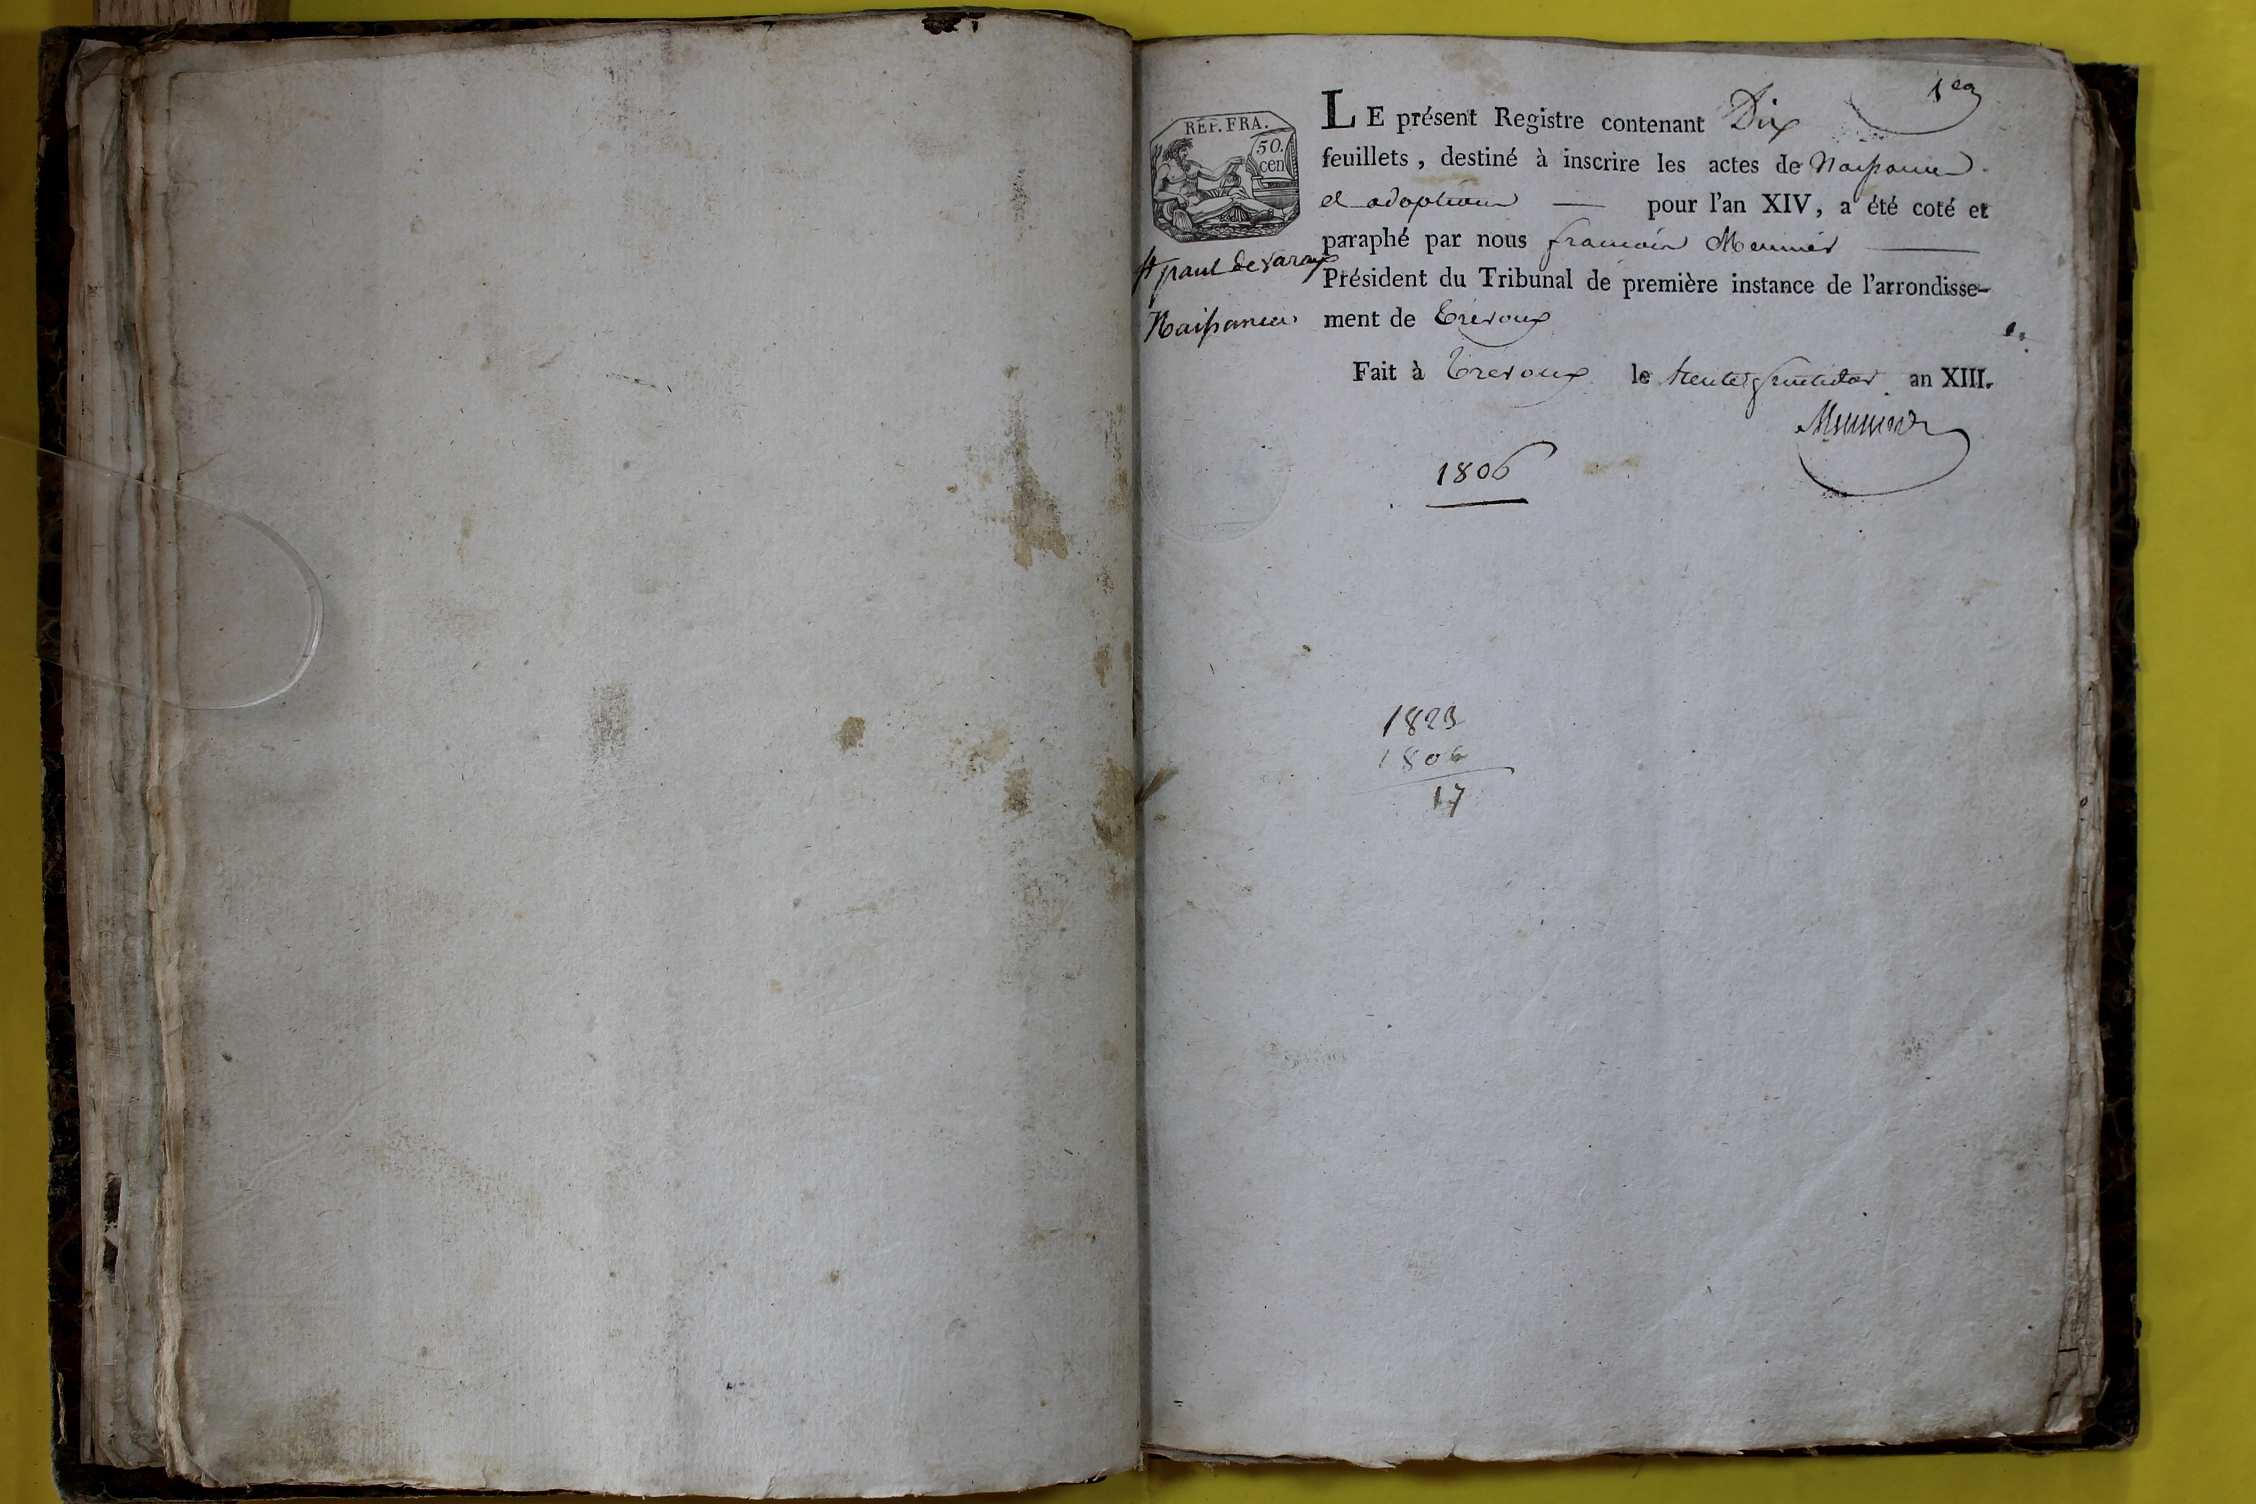 1er
RÉP. FRA.
50.
cen
LE présent Registre contenant Dix
feuillets, destiné à inscrire les actes de Naissance
et adoptions — pour l'an XIV, a été coté et
paraphé par nous francois Meunier —
St paul de varax
Président du Tribunal de première instance de l'arrondisse-
Naissances
ment de Trévoux
Fait à Trévoux le trente fructidor an XIII.
Meunier
1806
1823
1806
17